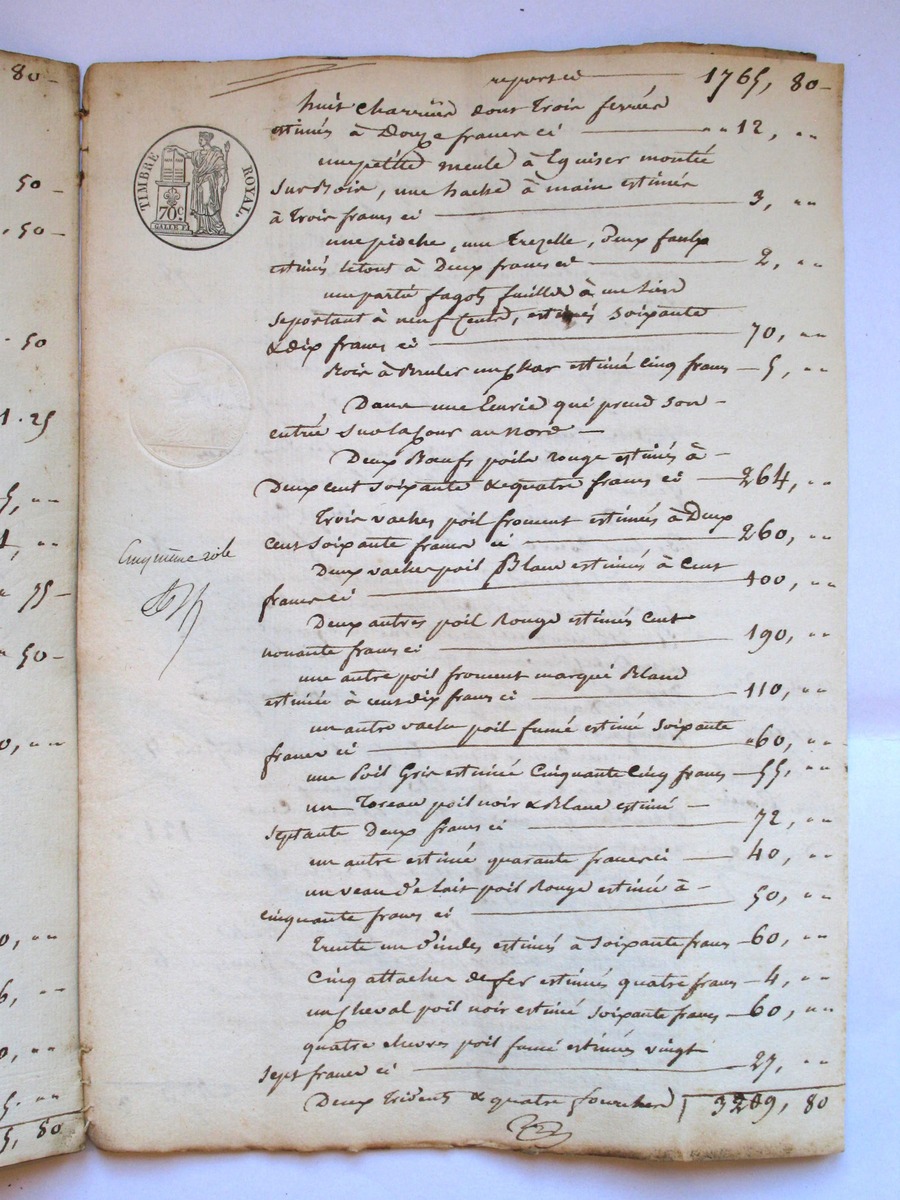 80 -
50 -
50 -
50
1 . 25
5, ""
4, ""
55 -
50 -
0, ""
0, ""
6, ""
0, ""
5, ""
5, 80
TIMBRE ROYAL.
70 c.
report ci 1765, 80 -
huit charrües dont trois ferrées
estimés à Douze francs ci "" 12, ""
une petite meule à Eguiser montée
sur Bois, une hache à main estimés
à trois francs ci 3, ""
une pioche, une trezelle, deux faulx
estimés le tout à Deux francs ci 2, ""
une partie fagots fuille à
se portant à neuf Cents, estimés soixante
& dix francs ci 70, ""
Bois à Bruler un Char estimé Cinq francs 5, ""
Dans une Eurie qui prend son
entrée sur la Cour au Nord
Deux Bœufs poils rouge estimés à
Deux cent soixante & quatre francs ci 264, ""
Trois vaches poil froment estimés à Deux
cent soixante francs ci 260, ""
Deux vaches poil Blanc estimés à Cent
francs ci 100, ""
Deux autres poil Rouge estimés Cent
nonante francs ci 190, ""
une autre poil froment marqué Blanc
estimée à cent dix francs ci 110, ""
un autre vache poil fumé estimé soixante
francs ci "60, ""
une Poil Gris estimée Cinquante Cinq francs 55, ""
un Toreau poil noir & Blanc estimé
septante Deux francs ci 72, ""
un autre estimé quarante francs ci 40, ""
un veau de lait poil Rouge estimé à
cinquante francs ci 50, ""
trente un d'indes estimés à soixante francs 60, ""
Cinq attaches de fer estimés quatre francs 4, ""
un Cheval poil noir estimé soixante francs 60, ""
quatre chevres poil fumé estimées vingt
sept francs ci 27, ""
Deux Tridents & quatre fourches 3209, 80
Cinquième rôle